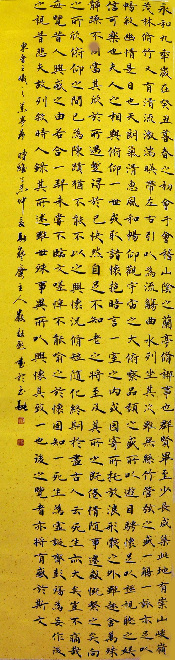 永和九年歲在癸丑暮春之初會于會稽山陰之蘭亭脩禊事也群賢畢至少長咸集此地有崇山峻嶺
茂林脩竹又有清流激湍映帶左右引以為流觴曲水列坐其次雖無絲竹管弦之盛一觴一詠亦足以
暢敘幽情是日也天朗氣清惠風和暢仰觀宇宙之大俯察品類之盛所以遊目騁懷足以極視聽之娛
信可樂也夫人之相與俯仰一世或取諸懷抱晤言一室之內或因寄所託放浪形骸之外雖趣舍萬殊靜
躁不同當其欣於所遇暫得於己快然自足不知老之將至及其所之既倦情隨事遷感慨係之矣向
之所欣俯仰之間已為陳跡猶不能不以之興懷況脩短隨化終期於盡古人云死生亦大矣豈不痛哉
每覽昔人興感之由若合一契未嘗不臨文嗟悼不能喻之於懷固知一死生為虛誕齊彭殤為妄作後
之視昔悲夫故列敘時人錄其所述雖世殊事異所以興懷其致一也後之覽者亦將有感於斯文
東晉王羲之蘭亭序 時維 仲 主人 書於